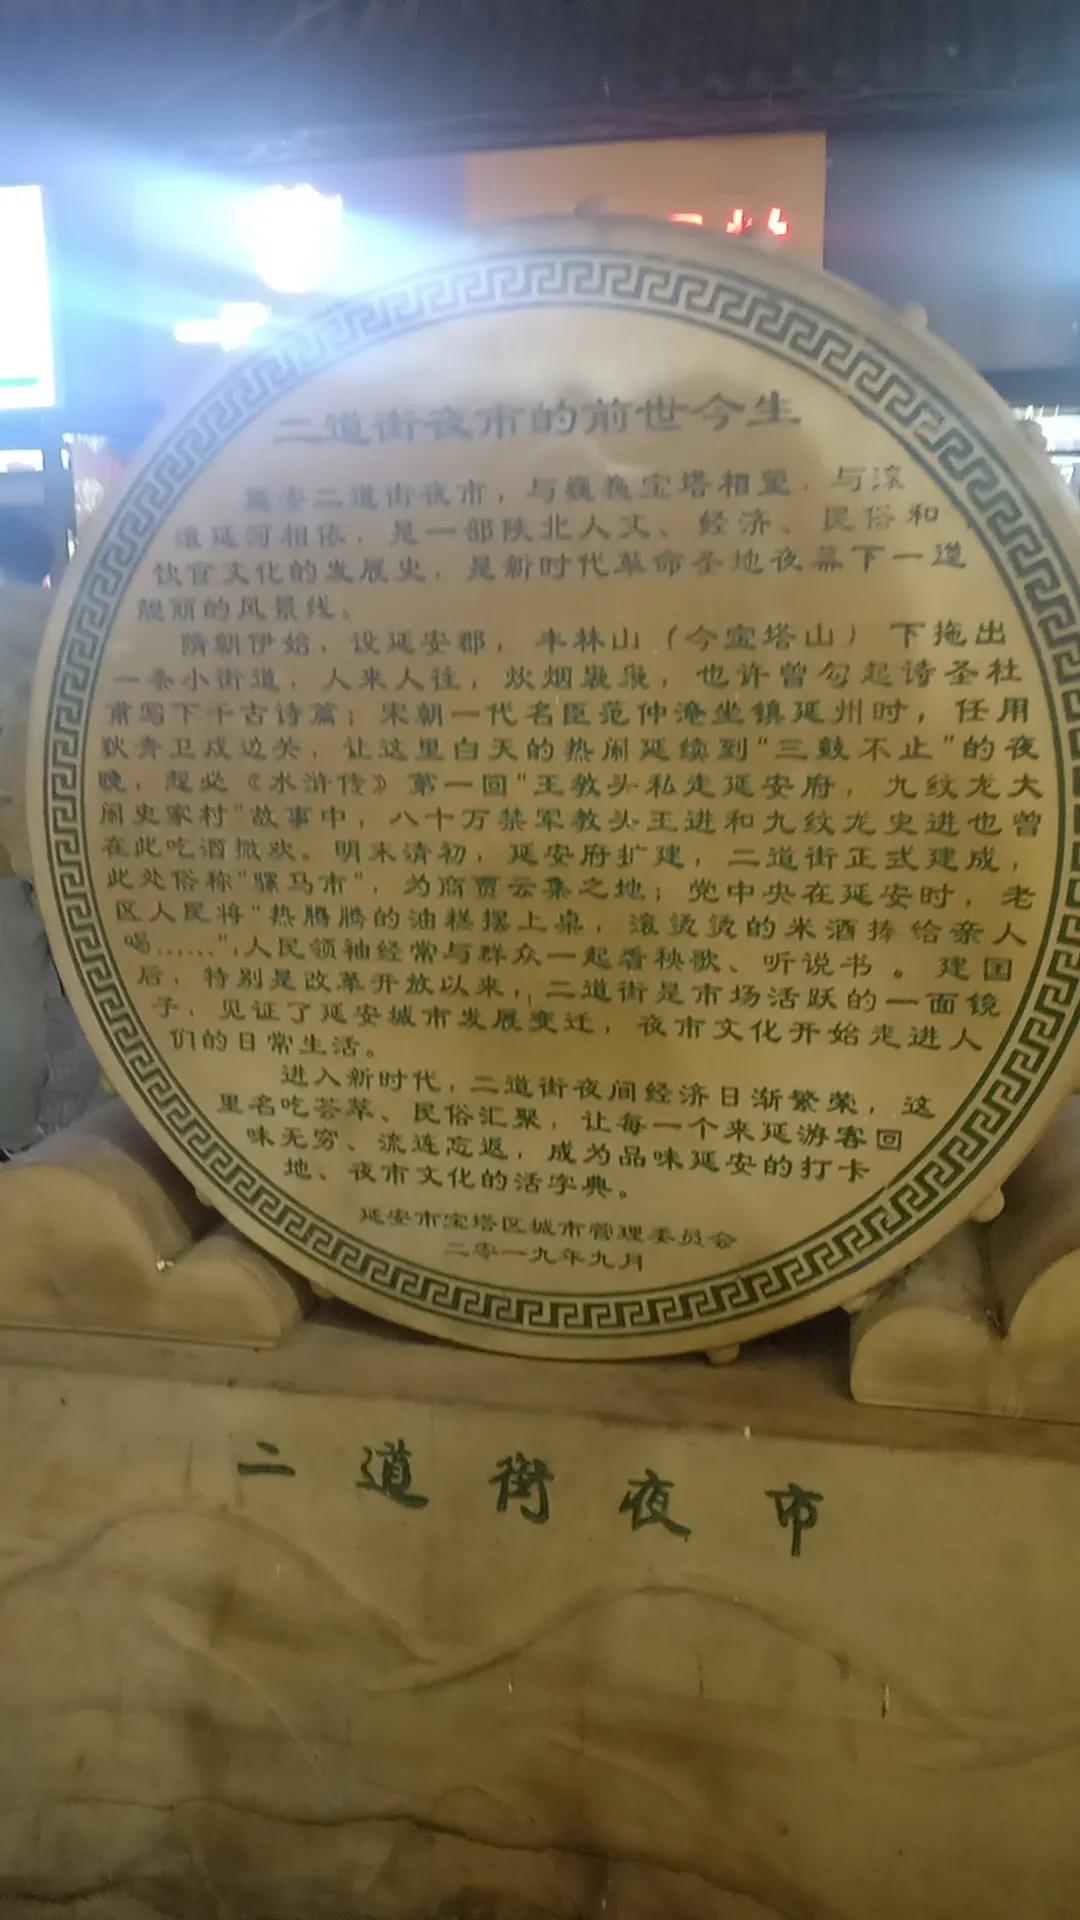 二道街夜市的前世今生
延安二道街夜市，与巍巍宝塔相望，与滚
滚延河相依，是一部陕北人文、经济、民俗和
饮食文化的发展史，是新时代革命圣地夜幕下一道
靓丽的风景线。
隋朝伊始，设延安郡，丰林山（今宝塔山）下拖出
一条小街道，人来人往，炊烟袅袅，也许曾勾起诗圣杜
甫写下千古诗篇；宋朝一代名臣范仲淹坐镇延州时，任用
狄青卫戍边关，让这里白天的热闹延续到“三鼓不止”的夜
晚，想必《水浒传》第一回“王教头私走延安府，九纹龙大
闹史家村”故事中，八十万禁军教头王进和九纹龙史进也曾
在此吃酒撒欢。明末清初，延安府扩建，二道街正式建成，
此处俗称“骡马市”，为商贾云集之地；党中央在延安时，老
区人民将“热腾腾的油糕摆上桌，滚烫烫的米酒捧给亲人
喝……”，人民领袖经常与群众一起看秧歌、听说书。建国
后，特别是改革开放以来，二道街是市场活跃的一面镜
子，见证了延安城市发展变迁，夜市文化开始走进人
们的日常生活。
进入新时代，二道街夜间经济日渐繁荣，这
里名吃荟萃、民俗汇聚，让每一个来延游客回
味无穷、流连忘返，成为品味延安的打卡
地、夜市文化的活字典。
延安市宝塔区城市管理委员会
二零一九年九月
二道街夜市